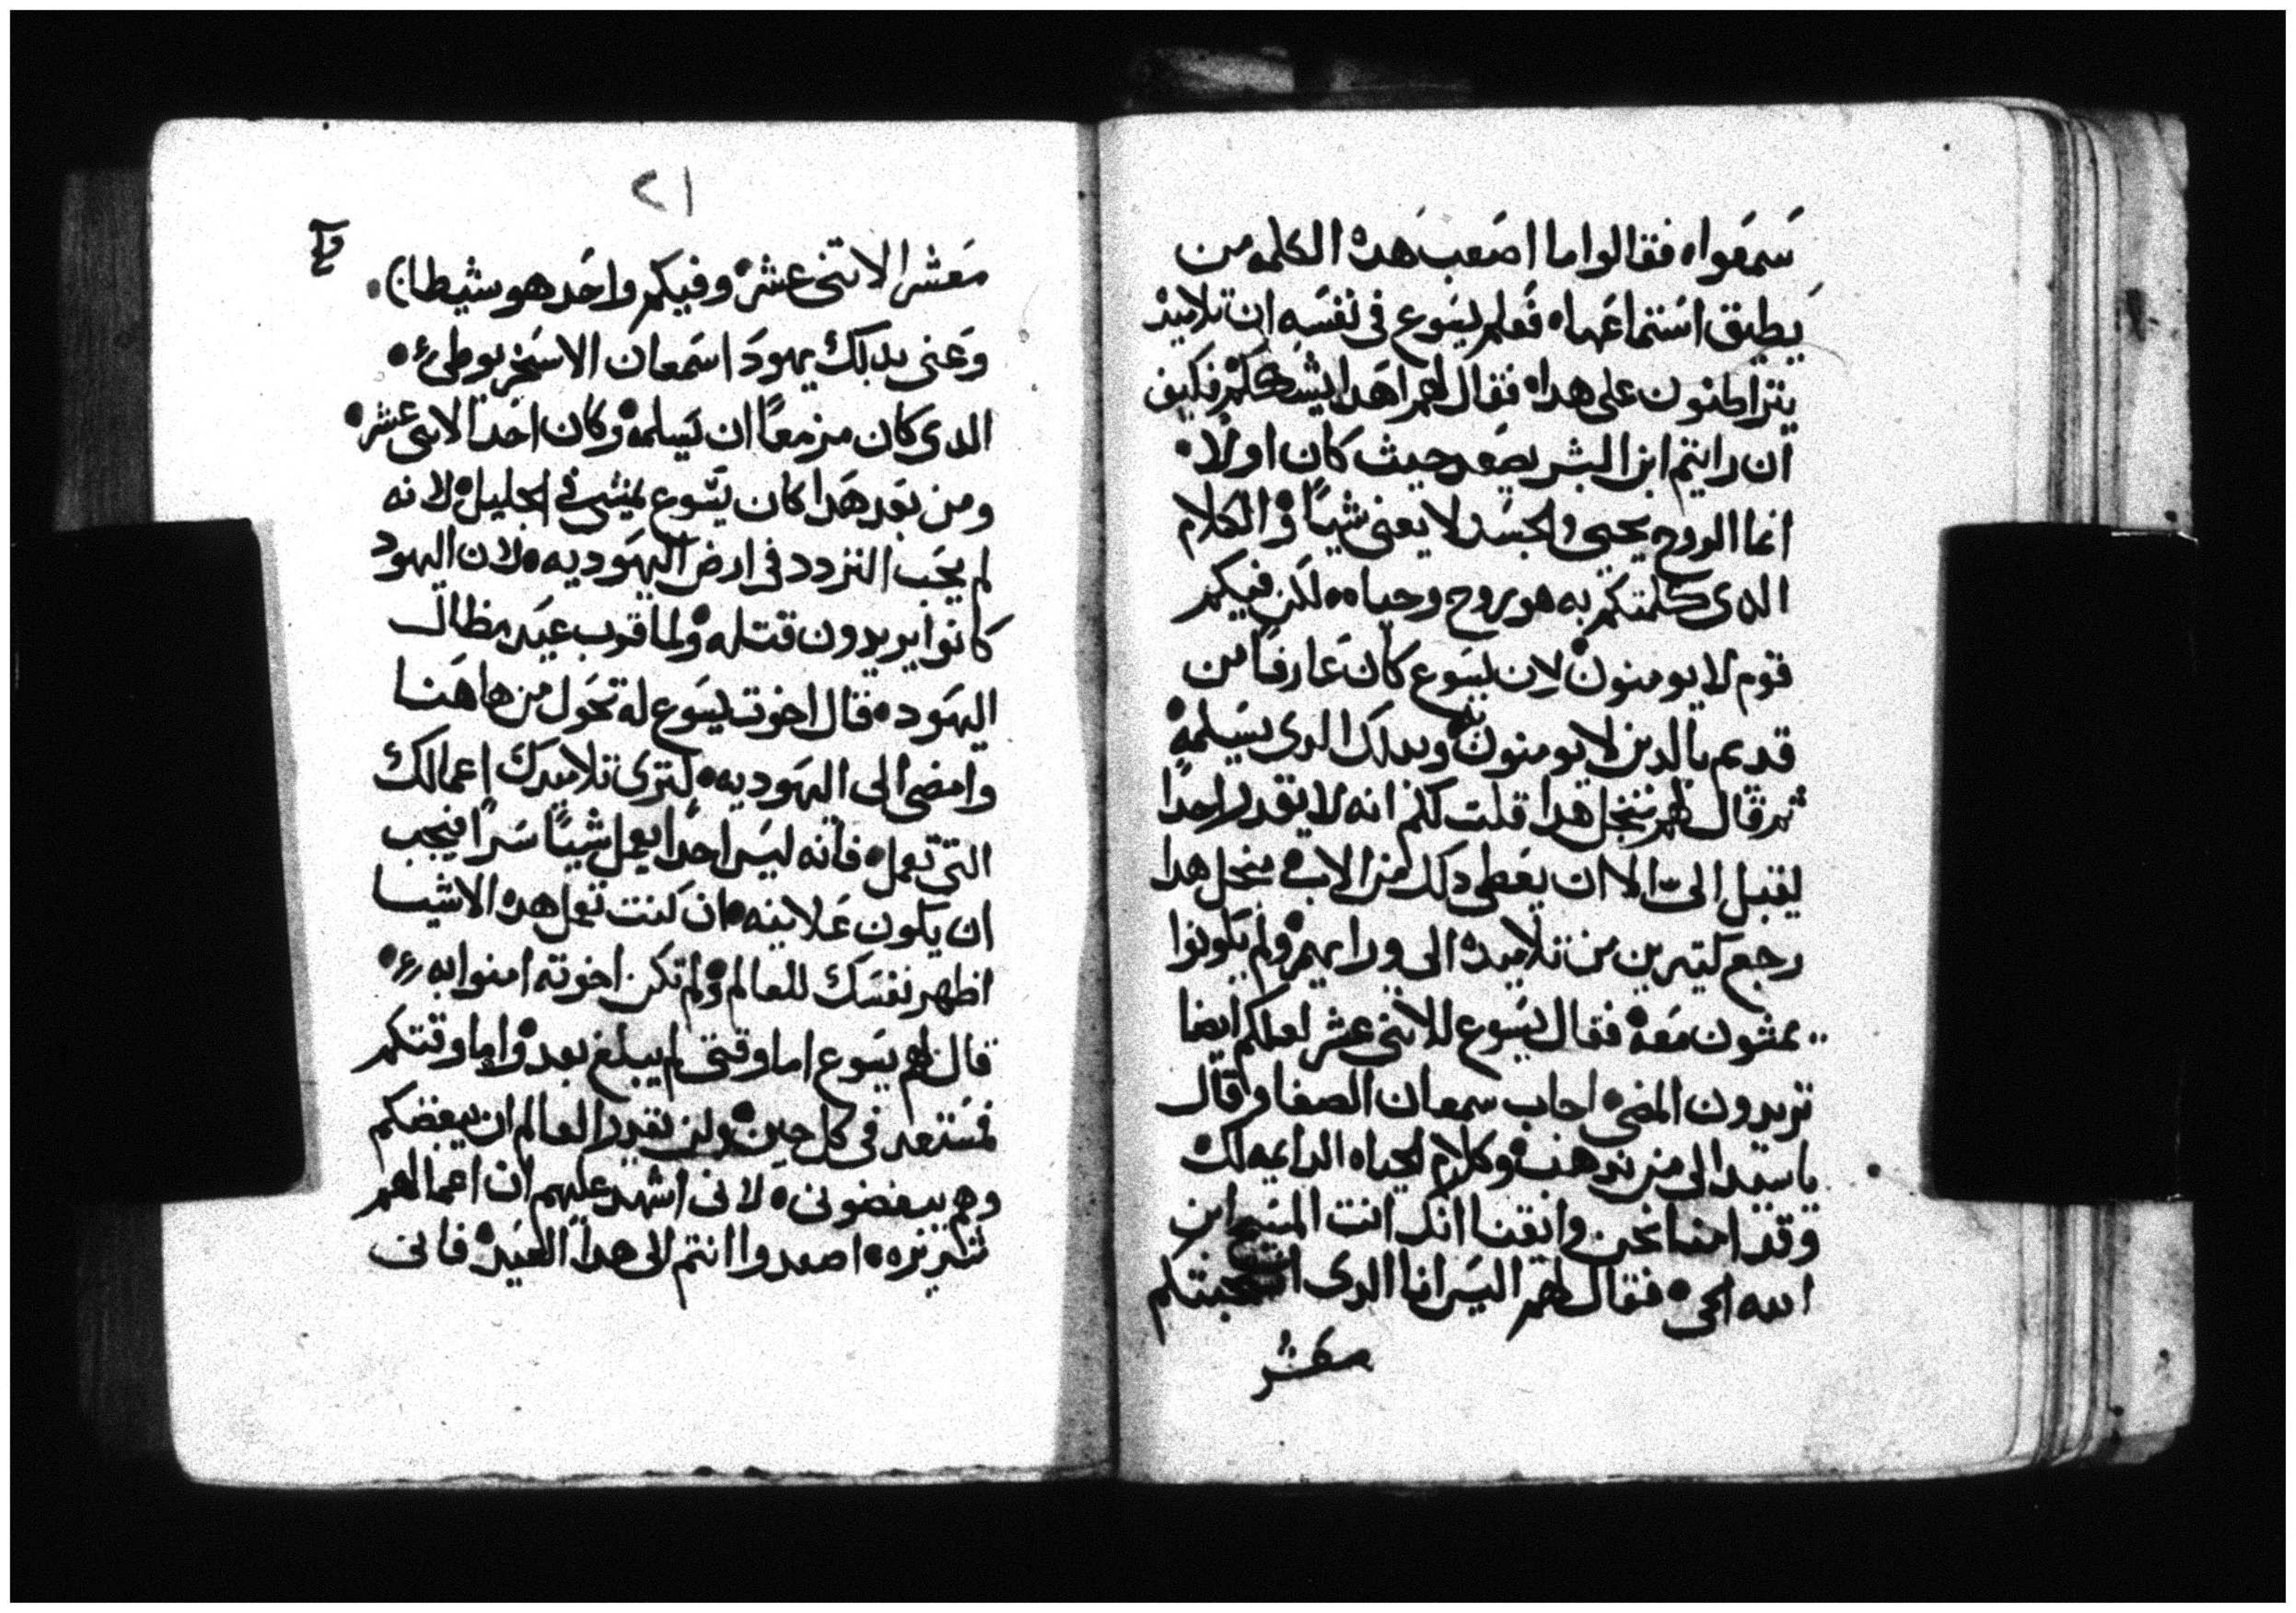 سمعواه فقالوا ما اصعب هده الكلمه من
يطيق استماعهاه فعلم يسوع فى نفسه ان تلاميد
يتراطنون على هداه فقال لهم اهدا يشككم فكيف
ان رايتم ابن البشر يصعد حيث كان اولا
انما الروح يحيى والجسد لا يعنى شيا والكلام
الدى كلمتكم به هو روح وحياه لكن فيكم
قوم لا يومنون لان يسوع كان عارفا من
قديم بالدين لا يومنون وبدلك الدى يسلمه
ثم قال لهم من اجل هدا قلت لكم انه لا يقدر احدا
يقبل الى الا ان يعطى دلك من الاب فمن اجل هدا
رجع كتيرين من تلاميده الى ورايهم ولم يكونوا
يمشون معه فقال يسوع للاتنى عشر لعلكم ايضا
تريدون المضى اجاب سمعان الصفا وقال
يا سيد الى من ندهب وكلام الحياه الدايمه لك
وقد امنا نحن وايقنا انك انت المسيح ابن
الله الحى فقال لهم اليس انا الدى انتخبتكم
معشر
٢١
معشر الاتنى عشر وفيكم واحد هو شيطان
وعنى بدلك يهودا سمعان الاسخريوطى
الدى كان مزمعا ان يسلمه وكان احد الاتنى عشر
ومن بعد هدا كان يسوع يمشى فى الجليل لانه
لم يحب التردد فى ارض اليهوديه لان اليهود
كانوا يريدون قتله ولما قرب عيد مظال
اليهود قال اخوت يسوع له تحول من هاهنا
وامضى الى اليهوديه لترى تلاميدك اعمالك
التى تعمل فانه ليس احدا يعمل شيا سرا فيحب
ان يكون علانيه ان كنت تعمل هده الاشيا
اظهر نفسك للعالم ولم تكن اخوته امنوا به
قال لهم يسوع اما وقتى لم يبلغ بعد واما وقتكم
فمستعد فى كل حين ولن يقدر العالم ان يبغضكم
وهم يبغضونى لانى اشهد عليهم ان اعمالهم
شريره اصعدوا انتم الى هدا العيد فانى